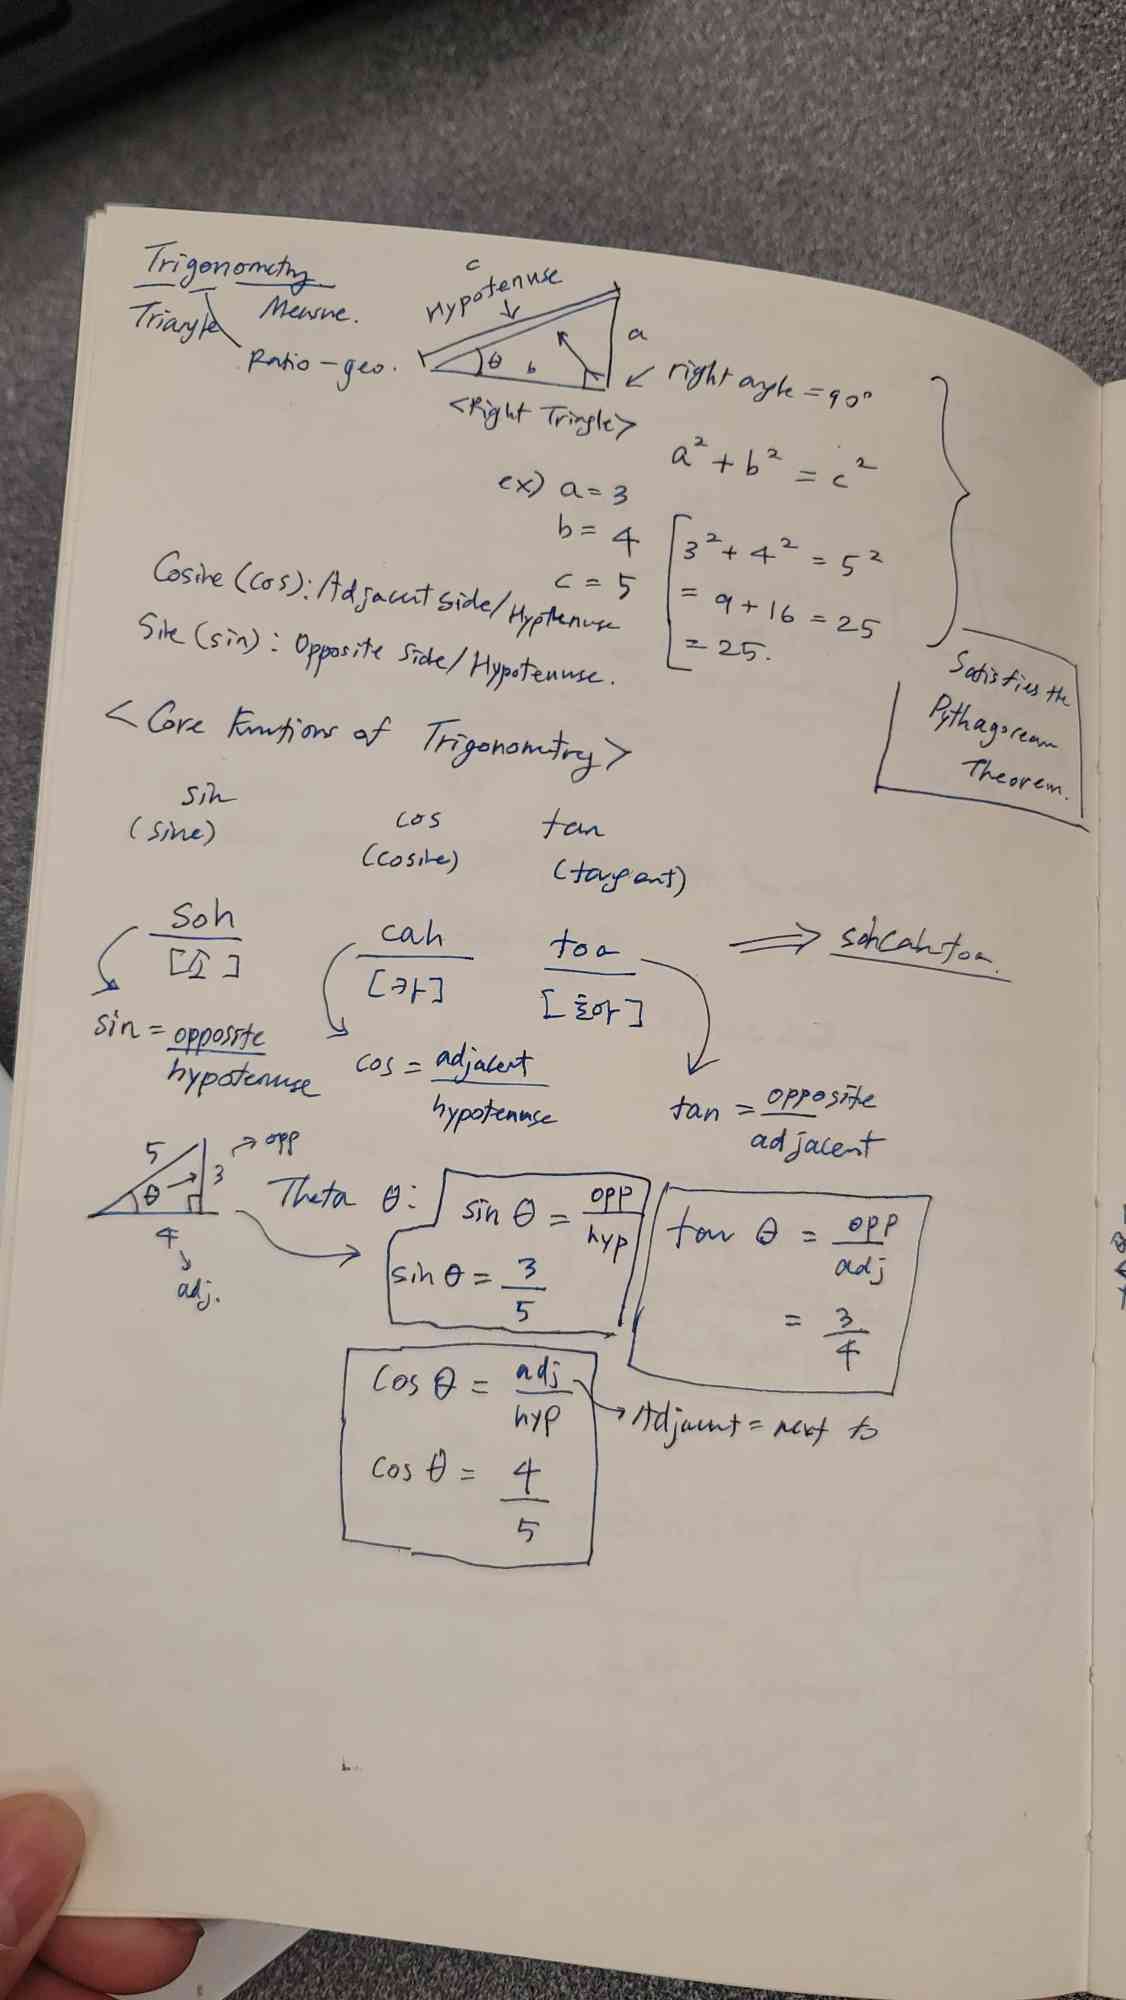 Trigonometry
Triangle Measure.
Ratio-geo.
c
Hypotenuse
a
θ b
right angle = 90°
<Right Tringle>
a² + b² = c²
ex) a = 3
b = 4
c = 5
3² + 4² = 5²
= 9 + 16 = 25
= 25.
Satisfies the
Pythagorean
Theorem.
Cosine (cos): Adjacent side/Hyptenuse
Sine (sin): Opposite side/Hypotenuse.
<Core Functions of Trigonometry>
sin cos tan
(sine) (cosine) (tangent)
soh cah toa ⇒ sohcahtoa.
[소] [카] [토아]
sin = opposite/hypotenuse
cos = adjacent/hypotenuse
tan = opposite/adjacent
5 → opp
θ → 3
4
adj.
Theta θ:
sin θ = opp/hyp
sin θ = 3/5
tan θ = opp/adj
= 3/4
cos θ = adj/hyp
→ Adjacent = next to
cos θ = 4/5